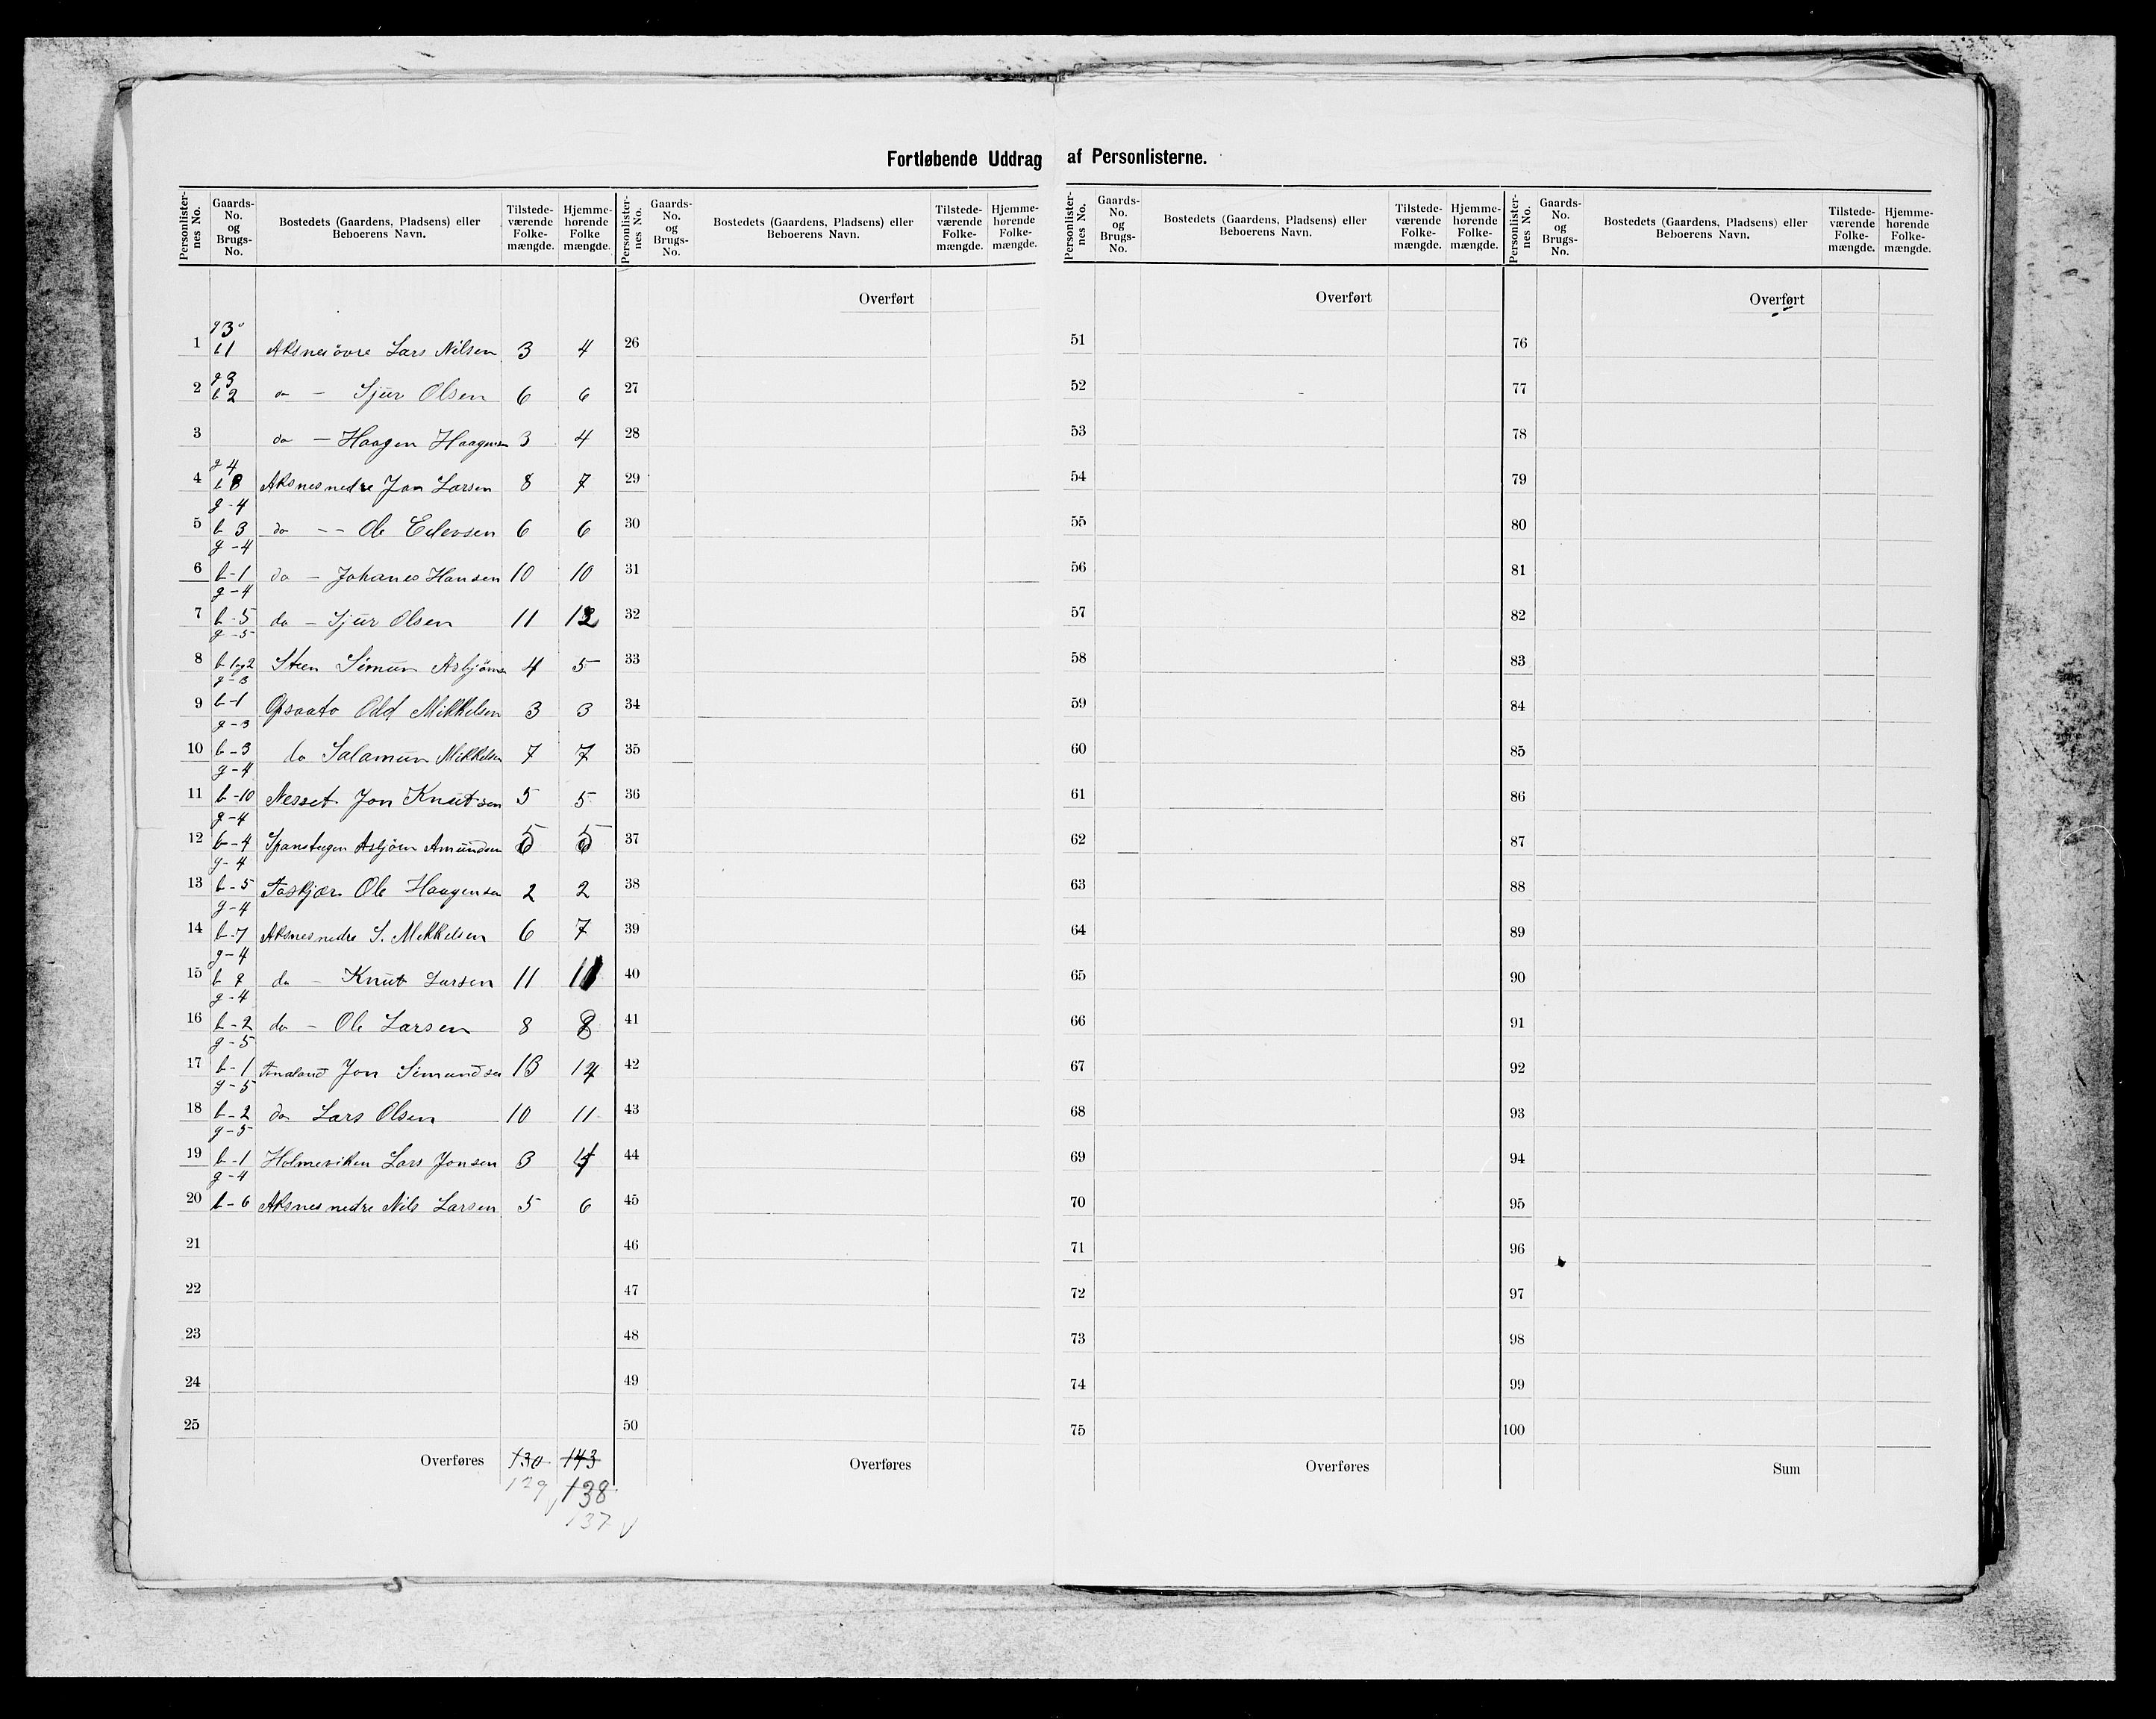 Fortløbende Uddrag af Personlisterne.
Personlisternes No. Gaards-No. og Brugs-No. Bostedets (Gaardens, Pladsens) eller Beboerens Navn. Tilstedeværende Folkemængde. Hjemmehørende Folkemængde.
Overført
1 g 3 b 1 Aksnes övre Lars Nilsen 3 4
2 g 3 b 2 do - Sjur Olsen 6 6
3 do - Haagen Haagensen 3 4
4 g 4 b 8 Aksnes nedre Jon Larsen 8 7
5 g-4 b 3 do -- Ole Eilevsen 6 6
6 g-4 b-1 do - Johanes Hansen 10 10
7 g-4 b-5 do - Sjur Olsen 11 12
8 g-5 b 1og2 Steen Simun Asbjörns 4 5
9 g-3 b-1 Opsaato Odd Mikkelsen 3 3
10 g-3 b-3 do Salamun Mikkelsen 7 7
11 g-4 b-10 Nesset Jon Knutsen 5 5
12 g-4 b-4 Asbjörn Amundsen 5 5
13 g-4 b-5 Ole Haagensen 2 2
14 g-4 b-7 Aksnes nedre S. Mikkelsen 6 7
15 g-4 b 9 do - Knut Larsen 11 11
16 g-4 b-2 do - Ole Larsen 8 8
17 g-5 b-1 Jon Simundsen 13 14
18 g-5 b-2 do Lars Olsen 10 11
19 g-5 b-1 Holmeviken Lars Jonsen 3 4
20 g-4 b-6 Aksnes nedre Nils Larsen 5 6
21
22
23
24
25
Overføres 130 143
129 138
137
Personlisternes No. Gaards-No. og Brugs-No. Bostedets (Gaardens, Pladsens) eller Beboerens Navn. Tilstedeværende Folkemængde. Hjemmehørende Folkemængde.
Overført
26
27
28
29
30
31
32
33
34
35
36
37
38
39
40
41
42
43
44
45
46
47
48
49
50
Overføres
Personlisternes No. Gaards-No. og Brugs-No. Bostedets (Gaardens, Pladsens) eller Beboerens Navn. Tilstedeværende Folkemængde. Hjemmehørende Folkemængde.
Overført
51
52
53
54
55
56
57
58
59
60
61
62
63
64
65
66
67
68
69
70
71
72
73
74
75
Overføres
Personlisternes No. Gaards-No. og Brugs-No. Bostedets (Gaardens, Pladsens) eller Beboerens Navn. Tilstedeværende Folkemængde. Hjemmehørende Folkemængde.
Overført
76
77
78
79
80
81
82
83
84
85
86
87
88
89
90
91
92
93
94
95
96
97
98
99
100
Sum